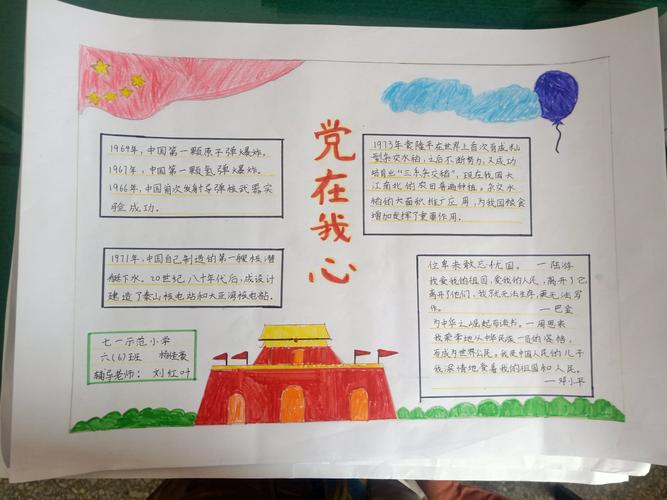 党在我心
1964年，中国第一颗原子弹爆炸。
1967年，中国第一颗氢弹爆炸。
1966年，中国首次发射导弹核武器实
验成功。
1971年，中国自己制造的第一艘核潜
艇下水。20世纪八十年代后，成设计
建造了泰山核电站和大亚湾核电站。
七一示范小学
六(6)班
辅导老师：刘红叶
1973年袁隆平在世界上首次育成籼
型杂交水稻，之后不断努力，又成功
培育出“三系杂交稻”，现在我国大
江南北的农田普遍种植。杂交水
稻的大面积推广应用，为我国粮食
增加发挥了重要作用。
位卑未敢忘忧国。—陆游
我爱我的祖国，爱我的人民，离开了它，
离开了他们，我就无法生存，更无法写
作。—巴金
为中华之崛起而读书。—周恩来
我荣幸地从中华民族一员的资格，
而成为世界公民。我是中国人民的儿子
我深情地爱着我的祖国和人民。
—邓小平